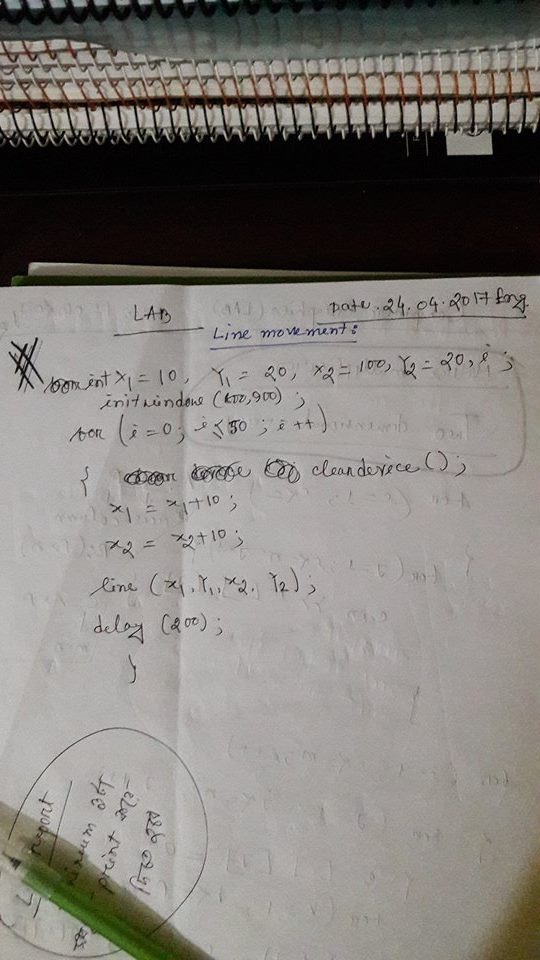 LAB
Date. 24.04.2017
Line movement:
int x1 = 10, Y1 = 20, x2 = 100, Y2 = 20, i ;
initwindow (400,900) ;
for (i=0; i≤50 ; i++)
{ cleardevice();
x1 = x1+10 ;
x2 = x2+10 ;
line (x1, Y1, x2, Y2) ;
delay (200) ;
}
report
print